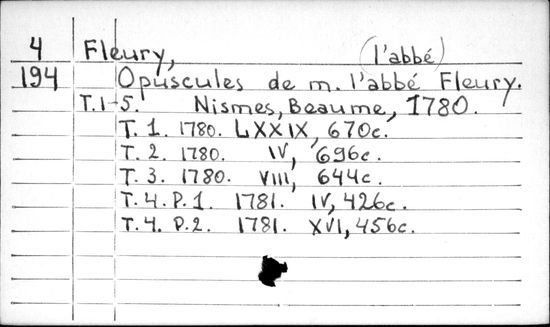 4 Fleury, (l'abbé)
194 Opuscules de m. l'abbé Fleury.
T.1-5. Nismes, Beaume, 1780.
T. 1. 1780. LXXIX, 670c.
T. 2. 1780. IV, 696c.
T. 3. 1780. VIII, 644c.
T. 4. P. 1. 1781. IV, 426c.
T. 4. P. 2. 1781. XVI, 456c.